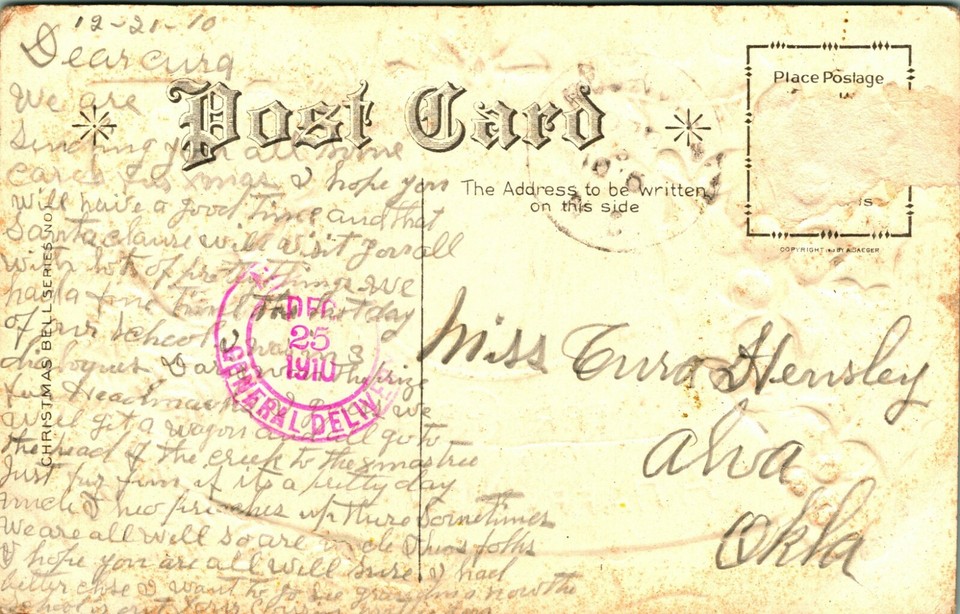 12-21-10
Dear Cura
We are
Sending you all some
cards for Xmas & I hope you
will have a good time and that
Santa clause will visit you all
with lots of pretty things. We
had a fine time the last day
of our school I was in 3
dialogues
for Headmarks
will get a wagon and all go to
the head of the creek to the xmas tree
Just for fun if its a pretty day
uncle Theo preaches up there Sometimes
We are all well so are uncle Theos folks
I hope you are all well sure I had
better close I want to go see grandma now the
school is out
CHRISTMAS BELL SERIES NO
Post Card
The Address to be written
on this side
Place Postage
COPYRIGHT
DEC
25
1910
GENERAL DELIV
Miss Cura Hensley
Alva
Okla